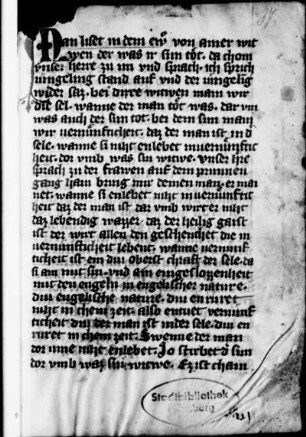 Man liset in dem ew von ainer wit
wen der was ir sun tot. da chom
vnser herre zu im vnd sprach. ich sprich
iungeling stand auf vnd der iungelig
wider saz. bei diure witwen man wir
die sel. wanne der man tot was. dar vm
was auch der sun tot. bei dem sun manı
wir vernunfticheit. daz der man ist in d
sele. wanne si niht enlebet in vernunftic
heit. dor vmb was sun witwe. vnser hre
sprach zu der frawen auf dem prunnen
gang haim bring mir deinen man. er mai
net. wanne si enlebet niht in vernunftic
heit daz der man ist. dar vmb wirt er niht
daz lebendig wazzer. daz der heilig gaist
ist der wirt allen den geschenket die in
vernunfticheit lebent. wanne vernunf
ticheit ist ein diu oberst chraft der sele. da
si am mit sin. vnd am eingeslozenheit
mit den engeln in engelischer nature.
diu engelische nature. diu en ruret
niht in chein zeit. also entuet vernunf
ticheit diu der man ist in der sele. diu en
ruret in chein zeit. Swenne der man
dor inne niht enlebet. so stirbet d sun
dor vmb waz sin witwe. Ez ist chain
Stadtbibliothek